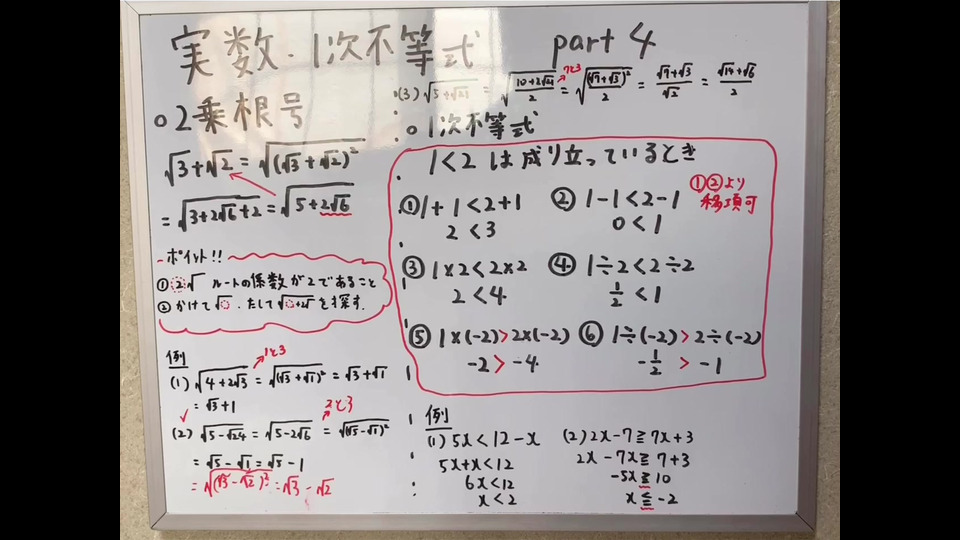 実数・1次不等式 part 4
○2乗根号
√3+√2 = √(√3+√2)²
= √3+2√6+2 = √5+2√6
ポイント!!
① 2√ ルートの係数が2であること
② かけて√○.たして√○+2√ を探す.
例
(1) √4+2√3 = √(√3+√1)² = √3+√1
1と3
= √3+1
(2) √5-√24 = √5-2√6 = √(√5-√1)²
✓ 2と3
= √5-√1 = √5-1
= √(√3-√2)² = √3-√2
(3) √5+√21 = √10+2√21/2 = √(√7+√3)²/2 = √7+√3/√2 = √14+√6/2
7と3
○1次不等式
1<2 は成り立っているとき
① 1+1<2+1 ② 1-1<2-1
2<3 0<1
①②より
移項可
③ 1×2<2×2 ④ 1÷2<2÷2
2<4 1/2<1
⑤ 1×(-2)>2×(-2) ⑥ 1÷(-2)>2÷(-2)
-2>-4 -1/2>-1
例
(1) 5x<12-x (2) 2x-7≧7x+3
5x+x<12 2x-7x≧7+3
6x<12 -5x≧10
x<2 x≦-2